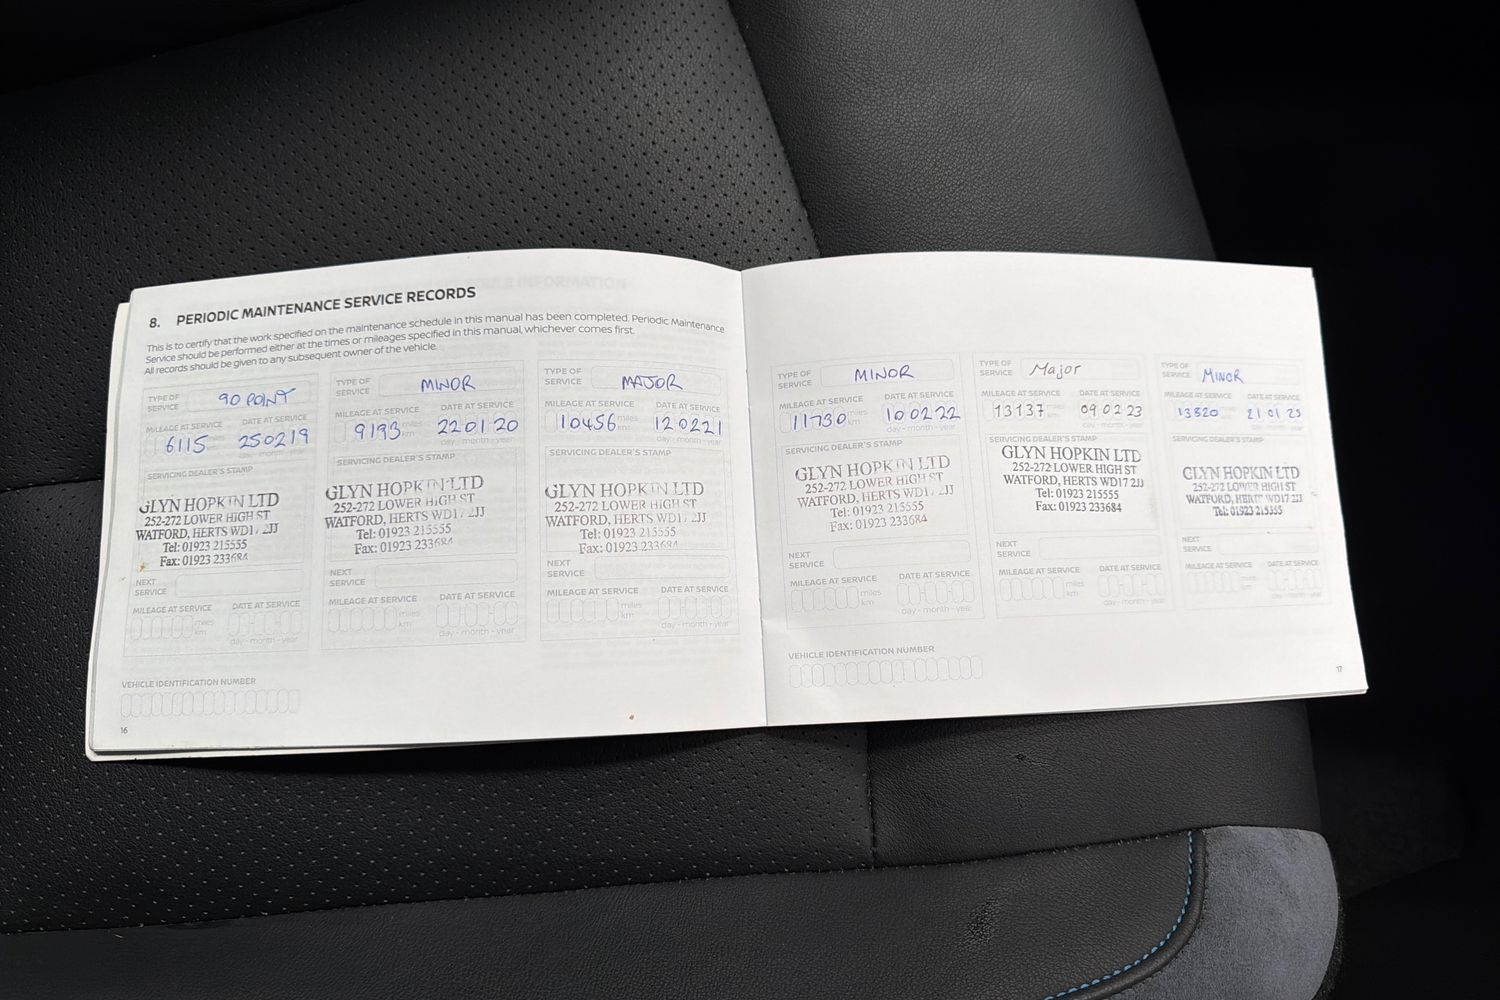 8. PERIODIC MAINTENANCE SERVICE RECORDS
This is to certify that the work specified on the maintenance schedule in this manual has been completed. Periodic Maintenance
Service should be performed either at the times or mileages specified in this manual, whichever comes first.
All records should be given to any subsequent owner of the vehicle.
TYPE OF SERVICE 90 POINT
MILEAGE AT SERVICE DATE AT SERVICE
6115 miles km 250219
day - month - year
SERVICING DEALER'S STAMP
GLYN HOPKIN LTD
252-272 LOWER HIGH ST
WATFORD, HERTS WD17 2JJ
Tel: 01923 215555
Fax: 01923 233684
NEXT SERVICE
MILEAGE AT SERVICE DATE AT SERVICE
miles km
day - month - year
TYPE OF SERVICE MINOR
MILEAGE AT SERVICE DATE AT SERVICE
9193 miles km 220120
day - month - year
SERVICING DEALER'S STAMP
GLYN HOPKIN LTD
252-272 LOWER HIGH ST
WATFORD, HERTS WD17 2JJ
Tel: 01923 215555
Fax: 01923 233684
NEXT SERVICE
MILEAGE AT SERVICE DATE AT SERVICE
miles km
day - month - year
TYPE OF SERVICE MAJOR
MILEAGE AT SERVICE DATE AT SERVICE
10456 miles km 120221
day - month - year
SERVICING DEALER'S STAMP
GLYN HOPKIN LTD
252-272 LOWER HIGH ST
WATFORD, HERTS WD17 2JJ
Tel: 01923 215555
Fax: 01923 233684
NEXT SERVICE
MILEAGE AT SERVICE DATE AT SERVICE
miles km
day - month - year
VEHICLE IDENTIFICATION NUMBER
16
TYPE OF SERVICE MINOR
MILEAGE AT SERVICE DATE AT SERVICE
11730 miles km 100222
day - month - year
SERVICING DEALER'S STAMP
GLYN HOPKIN LTD
252-272 LOWER HIGH ST
WATFORD, HERTS WD17 2JJ
Tel: 01923 215555
Fax: 01923 233684
NEXT SERVICE
MILEAGE AT SERVICE DATE AT SERVICE
miles km
day - month - year
TYPE OF SERVICE Major
MILEAGE AT SERVICE DATE AT SERVICE
13137 miles km 090223
day - month - year
SERVICING DEALER'S STAMP
GLYN HOPKIN LTD
252-272 LOWER HIGH ST
WATFORD, HERTS WD17 2JJ
Tel: 01923 215555
Fax: 01923 233684
NEXT SERVICE
MILEAGE AT SERVICE DATE AT SERVICE
miles km
day - month - year
TYPE OF SERVICE MINOR
MILEAGE AT SERVICE DATE AT SERVICE
13820 210125
day - month - year
SERVICING DEALER'S STAMP
GLYN HOPKIN LTD
252-272 LOWER HIGH ST
WATFORD, HERTS WD17 2JJ
Tel: 01923 215555
NEXT SERVICE
MILEAGE AT SERVICE DATE AT SERVICE
miles km
day - month - year
VEHICLE IDENTIFICATION NUMBER
17